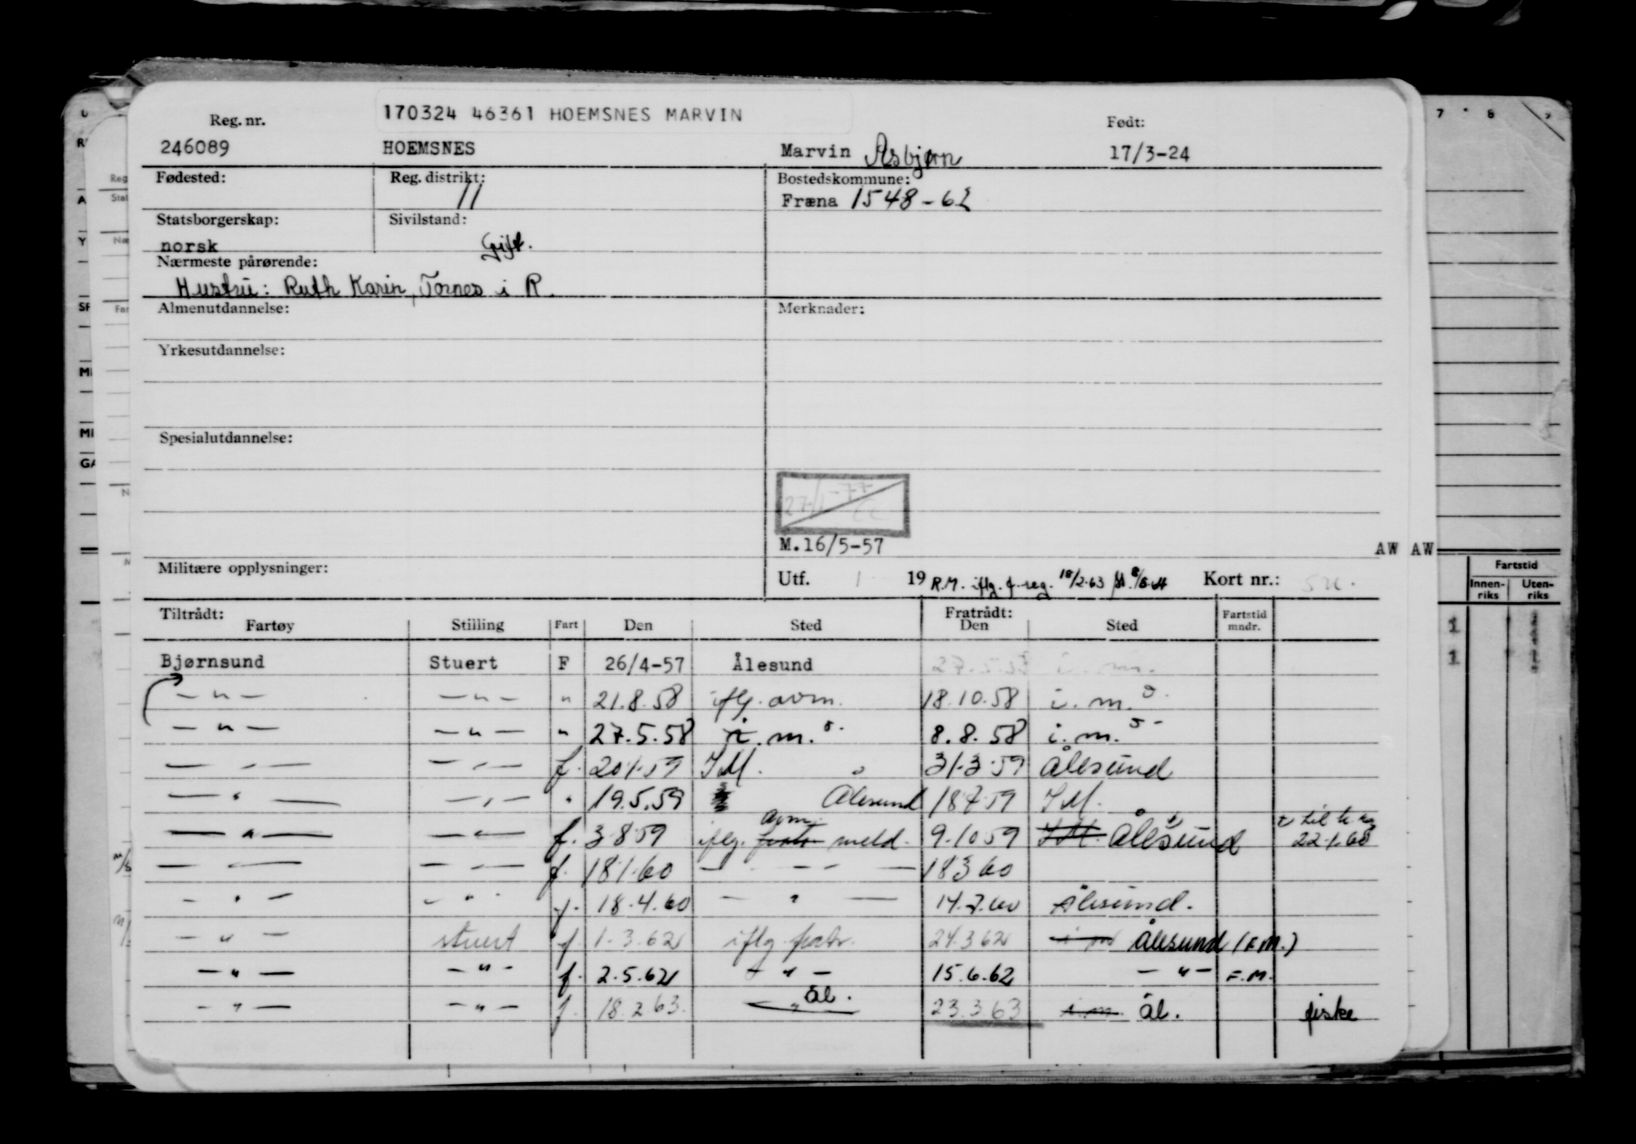 170324 46361 HOEMSNES MARVIN
Reg. nr. Født:
246089 HOEMSNES Marvin Asbjørn 17/3-24
Fødested: Reg. distrikt: 11 Bostedskommune:
Fræna 1548-62
Statsborgerskap: Sivilstand:
norsk Gift.
Nærmeste pårørende:
Hustru: Ruth Karin, Tornes i R.
Almenutdannelse: Merknader:
Yrkesutdannelse:
Spesialutdannelse:
M.16/5-57
AW AW
Militære opplysninger: Utf. 1 19 R.M. iflg. f. reg. 18/2-63 Kort nr.:
Tiltrådt: Fratrådt:
Fartøy Stilling Fart Den Sted Den Sted Fartstid mndr.
Bjørnsund Stuert F 26/4-57 Ålesund i. m.
— " — — " — " 21.8.58 iflg. avm. 18.10.58 i. m. o.
— " — — " — " 27.5.58 i. m. o. 8.8.58 i. m. o-
— " — — " — f. 20.1.59 IM. 31.3.59 Ålesund
— " — — " — " 19.5.59 Ålesund 18.7.59 IM.
— " — — " — f. 3.8.59 iflg. avm. meld. 9.10.59 IM. Ålesund 22.1.60
— " — — " — f. 18.1.60 — " — 18.3.60
— " — — " — f. 18.4.60 — " — 14.7.60 Ålesund.
— " — stuert f. 1.3.62 iflg. fratr. 24.3.62 i m Ålesund (F.M.)
— " — — " — f. 2.5.62 — " — 15.6.62 — " — F.M.
— " — — " — f. 18.2.63. — " — ål. 23.3.63 i m ål. fiske
7 8
Fartstid
Innen-riks Uten-riks
1
1